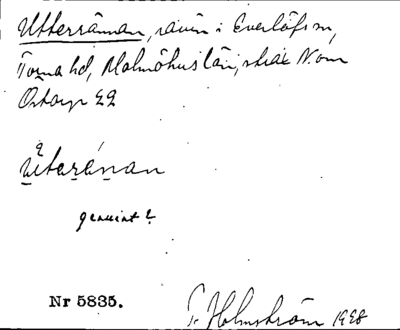 Utterrånan, ravin i Everlöfs sn,
Torna hd, Malmöhus län, strax N om
Ostarp EQ
Uteránan
genuint?
Nr 5835.
T. Holmström 1928